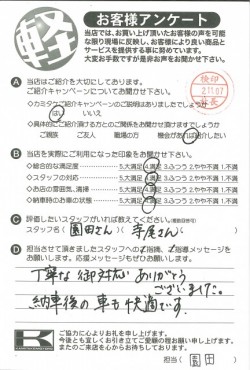 軽
お客様アンケート
当店では、お買い上げ頂いたお客様の声を可能
な限り現場に反映し、お客様により良い商品と
サービスを提供する事に努めています。
大変お手数ですが是非お声をお聞かせ下さい。
検印
2.11.07
店長
A 当店はご紹介を大切にしております。
ご紹介キャンペーンについてお聞かせ下さい。
◇カミタケご紹介キャンペーンのご説明はありましたでしょうか
はい いいえ
◇具体的にご紹介頂ける方とのご関係をお聞かせ頂けますでしょうか
ご親族 ご友人 職場の方 機会があれば紹介したい
B 当店を実際にご利用になった印象をお聞かせ下さい。
◇総合的な満足度 5.大満足 4.満足 3.ふつう 2.やや不満 1.不満
◇スタッフの対応 5.大満足 4.満足 3.ふつう 2.やや不満 1.不満
◇お店の雰囲気、清掃 5.大満足 4.満足 3.ふつう 2.やや不満 1.不満
◇納車時のお車の状態 5.大満足 4.満足 3.ふつう 2.やや不満 1.不満
C 評価したいスタッフがいれば教えてください。(複数回答可)
スタッフ名( 園田さん )( 寺尾さん )
D 担当させて頂きましたスタッフへのご指摘、ご指導メッセージを
お願いします。応援メッセージもぜひお願いします。
丁寧な御対応ありがとう
ございます。
納車後の車も快適です。
K
ご協力に心よりお礼を申し上げます。
今後とも宜しくお引き立てご愛顧の程お願い申し上げます。
またのご来店を心からお待ちしております。
担当( 園田 )